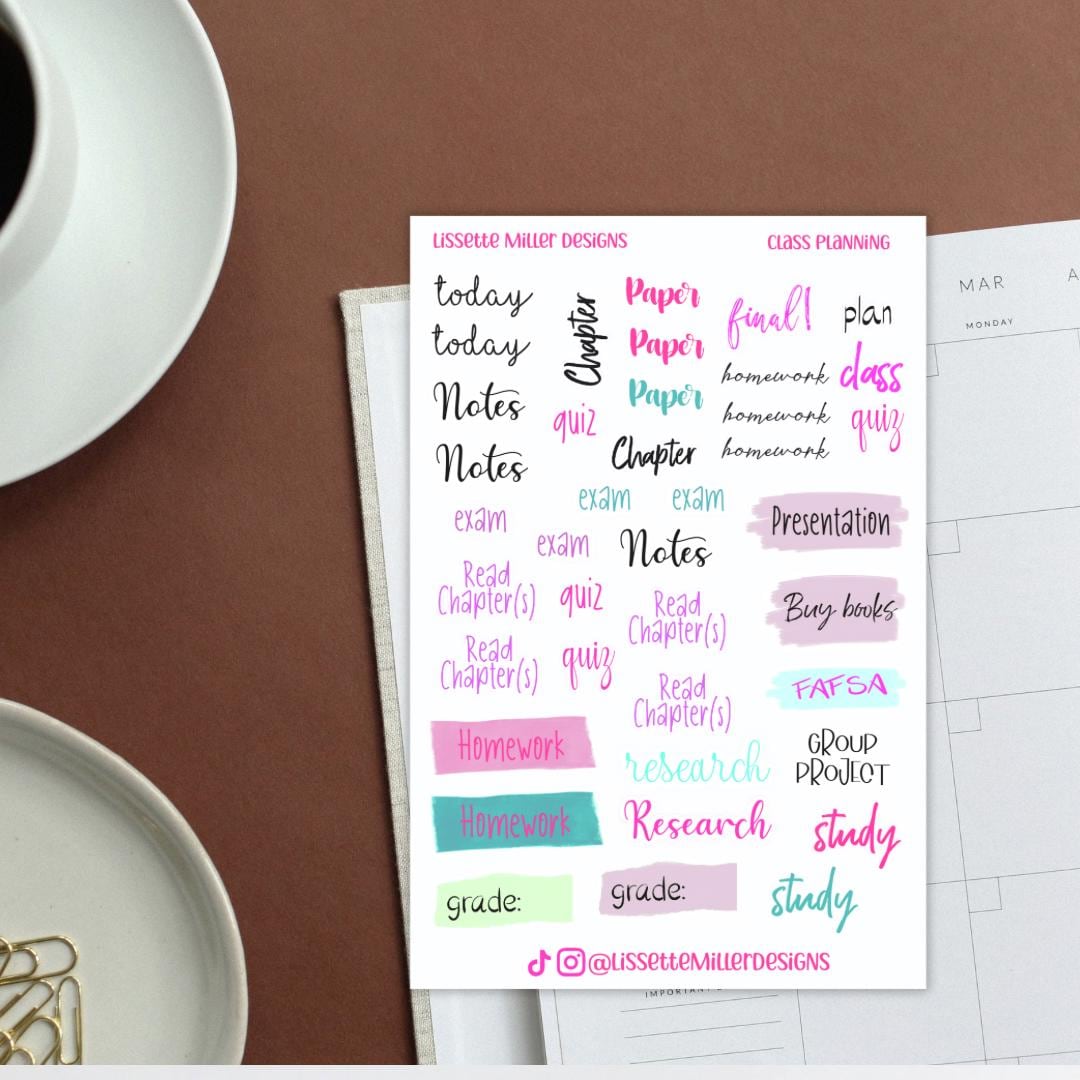 Lissette Miller Designs
Class Planning
today
today
Notes
Notes
Chapter
quiz
Paper
Paper
Paper
Chapter
final!
plan
homework
class
homework
quiz
homework
exam
exam
exam
exam
Notes
Presentation
Read
Chapter(s)
quiz
Read
Chapter(s)
Buy books
Read
Chapter(s)
quiz
Read
Chapter(s)
FAFSA
Homework
research
GROUP
PROJECT
Homework
Research
study
grade:
grade:
study
@LissetteMillerDesigns
MAR
A
MONDAY
IMPORTANT